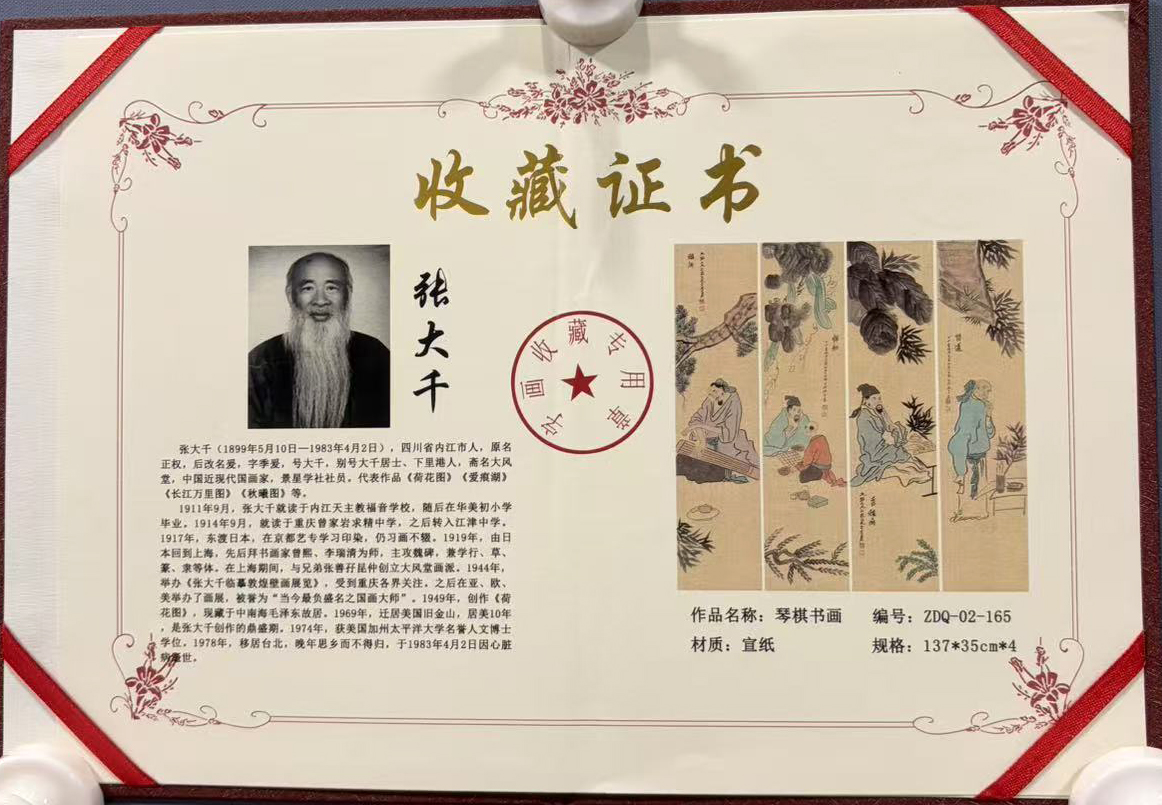 收藏证书
张大千
字画收藏专用章
张大千（1899年5月10日—1983年4月2日），四川省内江市人，原名
正权，后改名爰，字季爰，号大千，别号大千居士、下里港人，斋名大风
堂，中国近现代国画家，景星学社社员。代表作品《荷花图》《爱痕湖》
《长江万里图》《秋曦图》等。
1911年9月，张大千就读于内江天主教福音学校，随后在华美初小学
毕业。1914年9月，就读于重庆曾家岩求精中学，之后转入江津中学。
1917年，东渡日本，在京都艺专学习印染，仍习画不辍。1919年，由日
本回到上海，先后拜书画家曾熙、李瑞清为师，主攻魏碑，兼学行、草、
篆、隶等体。在上海期间，与兄弟张善孖昆仲创立大风堂画派。1944年，
举办《张大千临摹敦煌壁画展览》，受到重庆各界关注。之后在亚、欧、
美举办了画展，被誉为“当今最负盛名之国画大师”。1949年，创作《荷
花图》，现藏于中南海毛泽东故居。1969年，迁居美国旧金山，居美10年
，是张大千创作的鼎盛期。1974年，获美国加州太平洋大学名誉人文博士
学位。1978年，移居台北，晚年思乡而不得归，于1983年4月2日因心脏
病逝世。
作品名称：琴棋书画 编号：ZDQ-02-165
材质：宣纸 规格：137*35cm*4